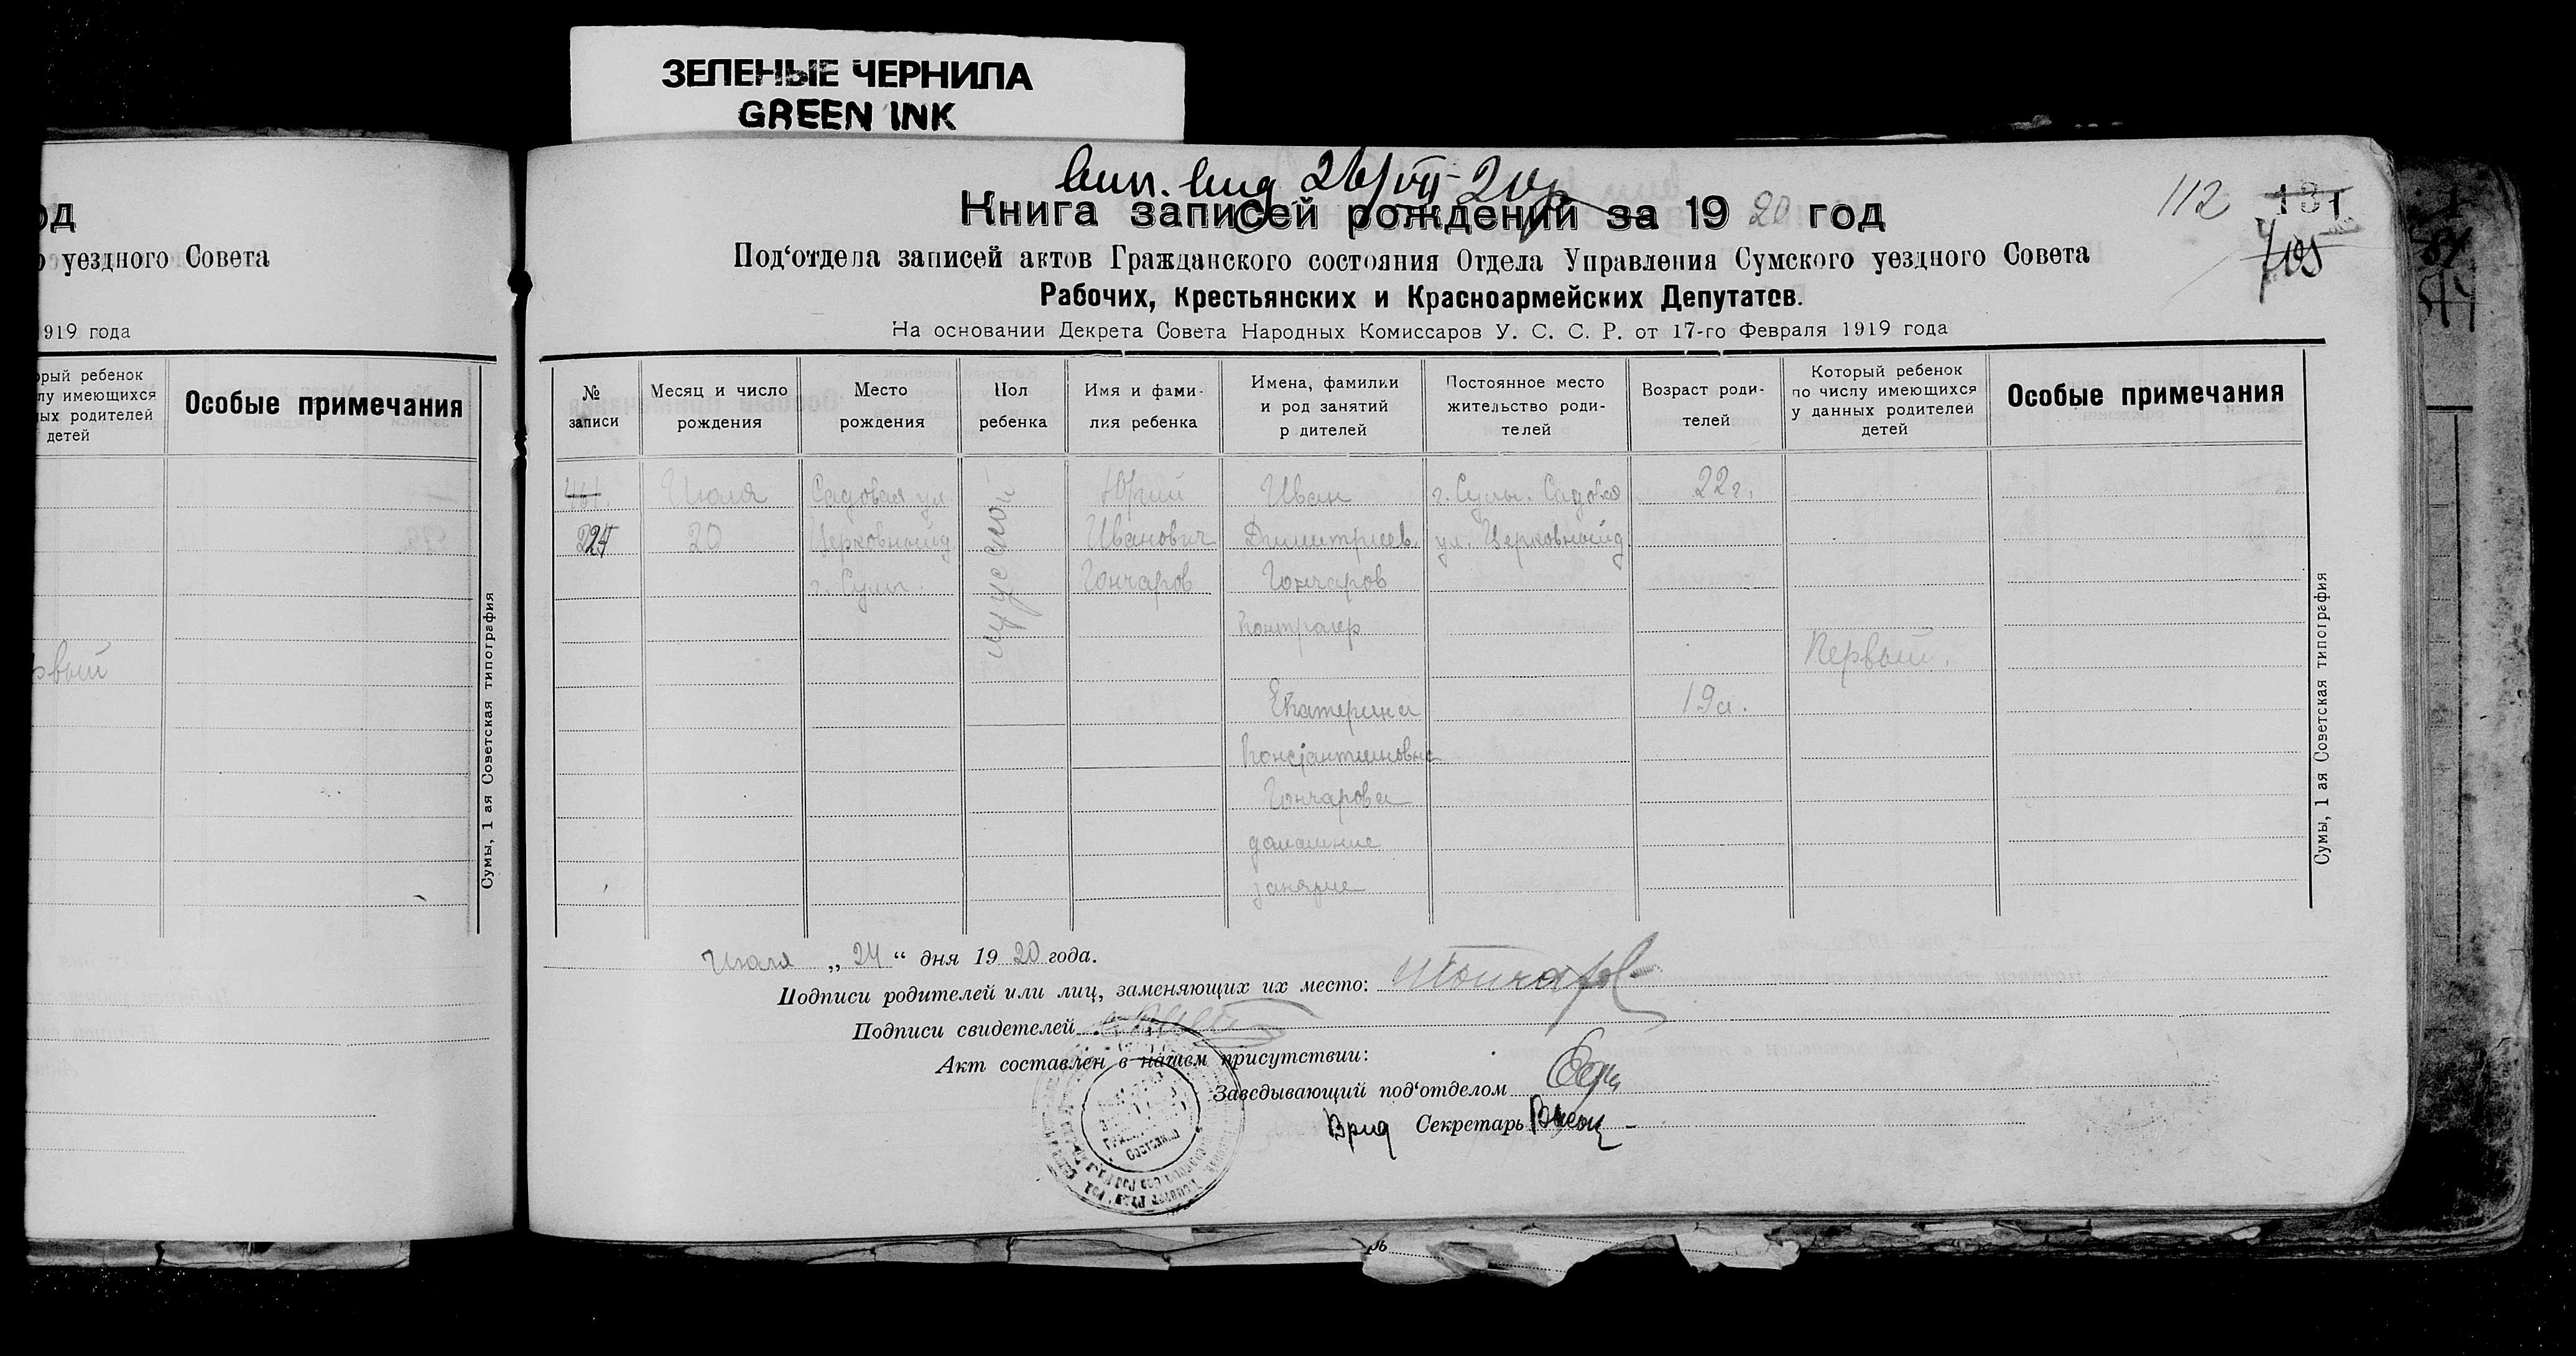 ЗЕЛЕНЫЕ ЧЕРНИЛА
GREEN INK
од
уездного Совета
1919 года
орый ребенок
лу имеющихся
ых родителей
детей
Особые примечания
рвый
Сумы, 1 ая Советская типография
26/VII-20
112 131
705
Книга записей рождений за 19 20 год
Под‘отдела записей актов Гражданского состояния Отдела Управления Сумского уездного Совета
Рабочих, Крестьянских и Красноармейских Депутатов.
На основании Декрета Совета Народных Комиссаров У. С. С. Р. от 17-го Февраля 1919 года
№ записи
Месяц и число рождения
Место рождения
Пол ребенка
Имя и фами-лия ребенка
Имена, фамилии и род занятий р дителей
Постоянное место жительство роди-телей
Возраст роди-телей
Который ребенок по числу имеющихся у данных родителей детей
Особые примечания
461.
Июля
20
Садовая ул.
Церковный д.
г. Сумы.
мужской
Юрий
Иванович
Гончаров
Иван
Димитриев.
Гончаров
Контролер
г. Сумы. Садовая
ул. Церковный д.
22 г.
Первый.
Екатерина
Константиновна
Гончарова
домашние
занятие
19 л.
Июля „ 24 “ дня 19 20 года.
Подписи родителей или лиц, заменяющих их место: Гончаров
Подписи свидетелей
Акт составлен в нашем присутствии:
Заведывающий под‘отделом
Врид Секретарь
Гражданского
Состояния
Сумы, 1 ая Советская типография